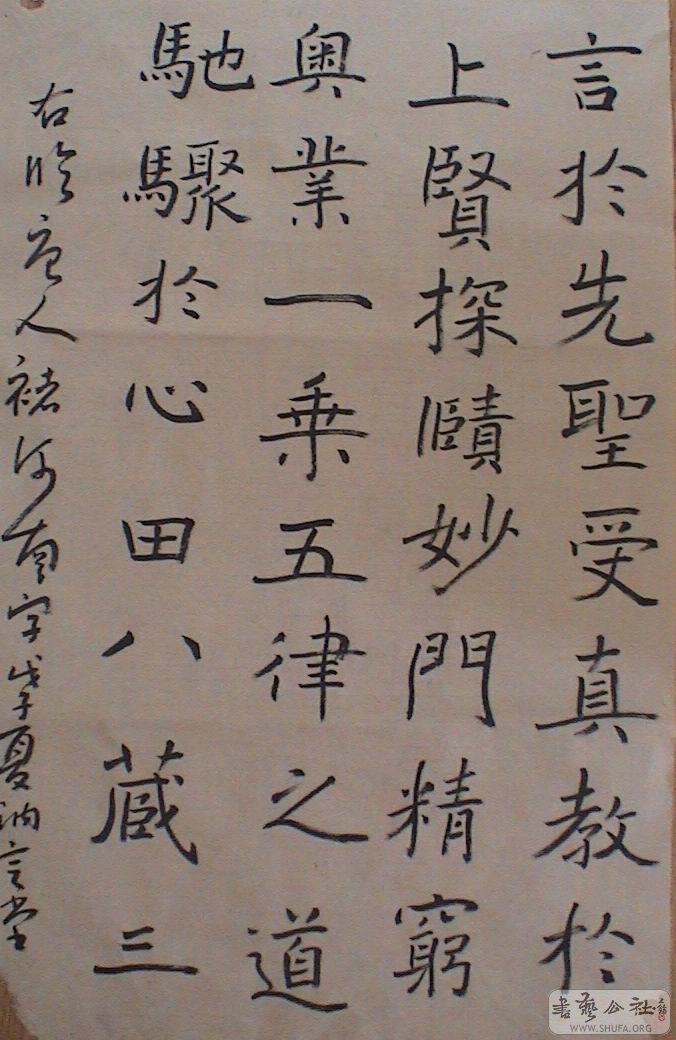 言於先聖受真教於
上賢探賾妙門精窮
奧業一乗五律之道
馳驟於心田八蔵三
右臨唐人褚河南字戊子夏訥言堂
書藝公社
WWW.SHUFA.ORG